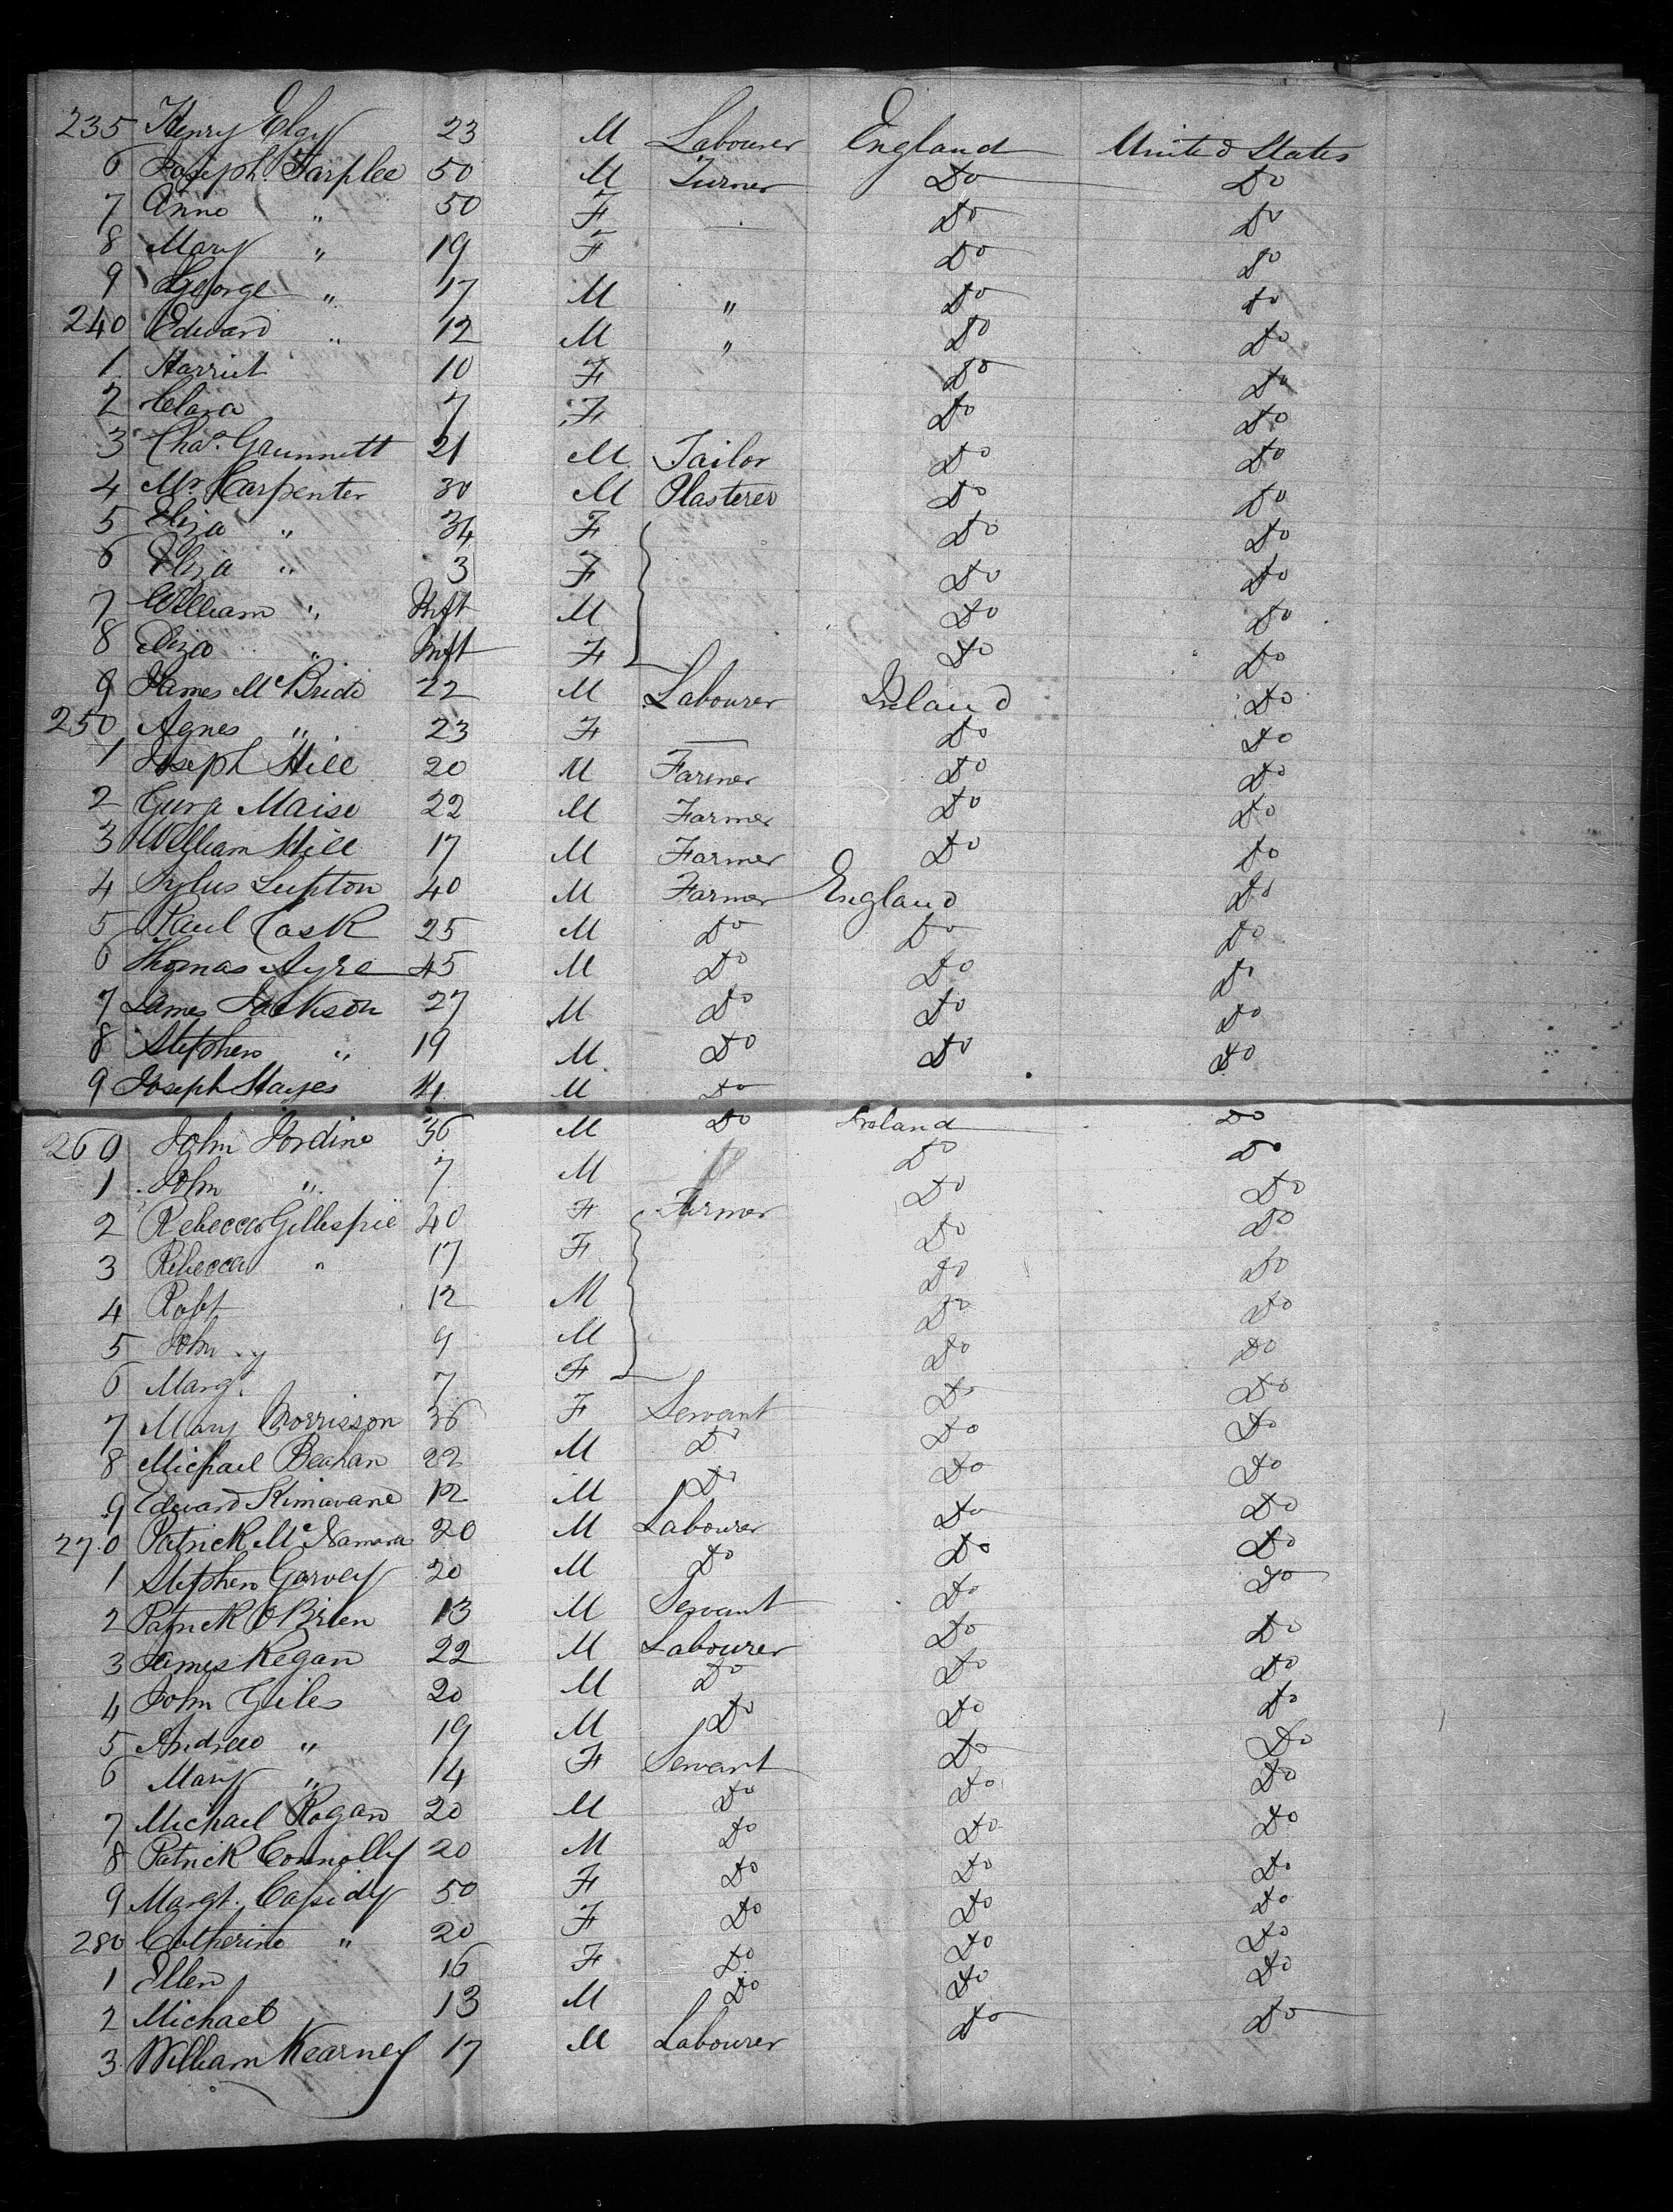 235 Henry Elgy 23 M Labourer England United States
6 Joseph Tarplee 50 M Turner Do Do
7 Anne " 50 F Do Do
8 Mary " 19 F Do Do
9 George " 17 M " Do Do
240 Edward " 12 M " Do Do
1 Harriet 10 F Do Do
2 Clara 7 F Do Do
3 Chas. Grunnett 21 M Tailor Do Do
4 Mr Carpenter 30 M Plasterer Do Do
5 Eliza " 34 F Do Do
6 Eliza " 3 F Do Do
7 William " Inft M Do Do
8 Eliza " Inft F Do Do
9 James McBride 22 M Labourer Ireland Do
250 Agnes " 23 F — Do Do
1 Joseph Hill 20 M Farmer Do Do
2 Maise 22 M Farmer Do Do
3 William Hill 17 M Farmer Do Do
4 Lupton 40 M Farmer England Do
5 Paul Cask 25 M Do Do Do
6 Thomas Ayre 45 M Do Do Do
7 James Jackson 27 M Do Do Do
8 Stephen " 19 M Do Do Do
9 Joseph Hayes M Do
260 John Jordine 36 M Do Ireland Do
1 John " 7 M Do Do
2 Rebecca Gillespie 40 F Farmer Do Do
3 Rebecca " 17 F Do Do
4 Robt 12 M Do Do
5 John " 9 M Do Do
6 Margt. 7 F Do Do
7 Mary Morrisson 36 F Servant Do Do
8 Michael Beahan 22 M Do Do Do
9 Edward Kinavane 12 M Do Do Do
270 Patrick McNamara 20 M Labourer Do Do
1 Stephen Garvey 20 M Do Do Do
2 Patrick OBrien 13 M Servant Do Do
3 James Regan 22 M Labourer Do Do
4 John Giles 20 M Do Do Do
5 Andrew " 19 M Do Do Do
6 Mary " 14 F Servant Do Do
7 Michael Rogan 20 M Do Do Do
8 Patrick Connolly 20 M Do Do Do
9 Margt. Cassidy 50 F Do Do Do
280 Catherine " 20 F Do Do Do
1 Ellen 16 F Do Do Do
2 Michael 13 M Do Do Do
3 William Kearney 17 M Labourer Do Do